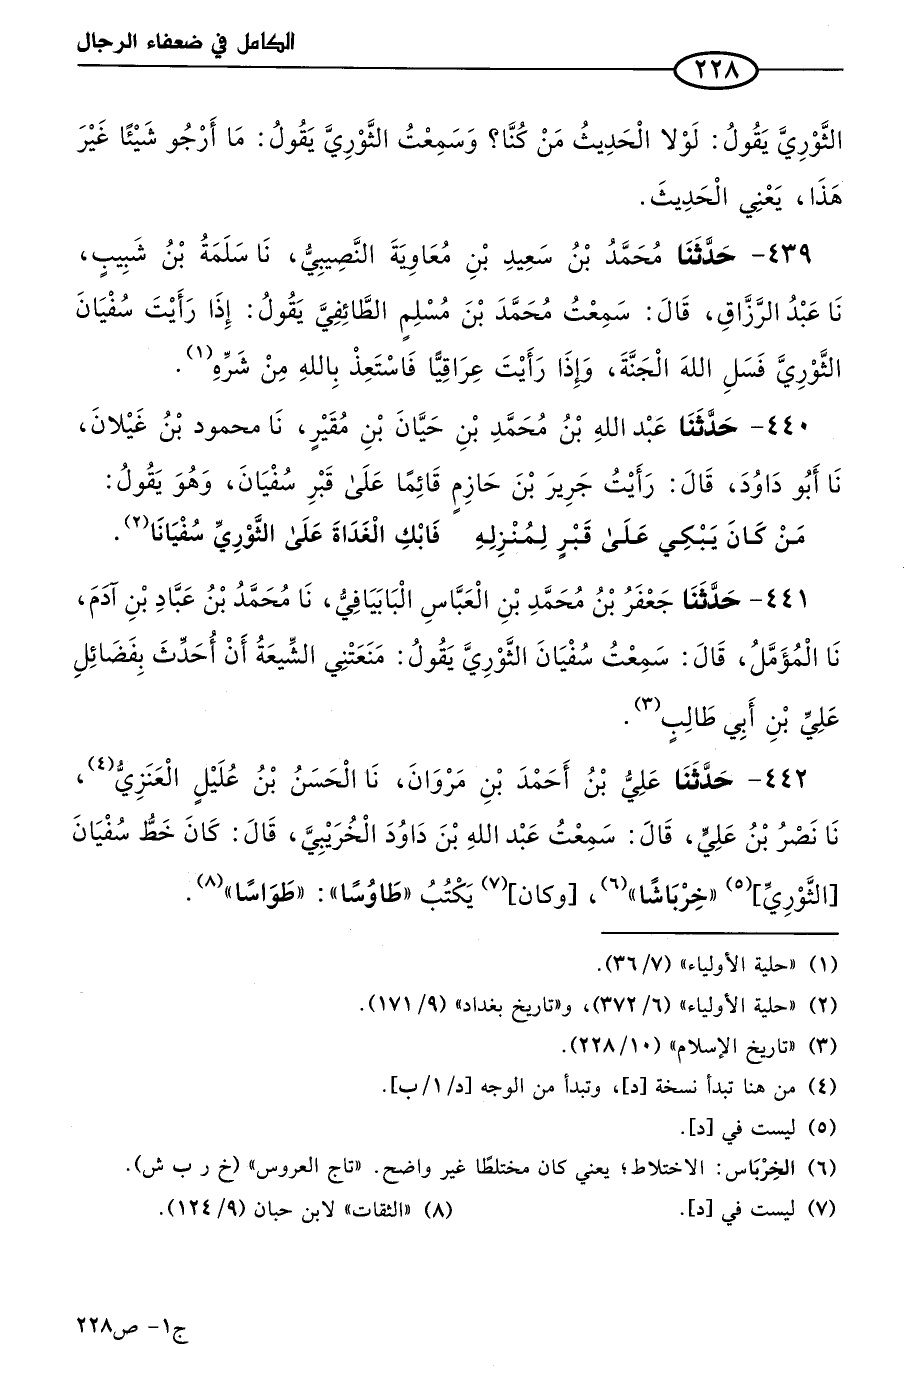 الكامل في ضعفاء الرجال
٢٢٨
الثَّوْرِيَّ يَقُولُ: لَوْلا الْحَدِيثُ مَنْ كُنَّا؟ وَسَمِعْتُ الثَّوْرِيَّ يَقُولُ: مَا أَرْجُو شَيْئًا غَيْرَ
هَذَا، يَعْنِي الْحَدِيثَ.
٤٣٩- حَدَّثَنَا مُحَمَّدُ بْنُ سَعِيدِ بْنِ مُعَاوِيَةَ النَّصِيبِيُّ، نَا سَلَمَةُ بْنُ شَبِيبٍ،
نَا عَبْدُ الرَّزَّاقِ، قَالَ: سَمِعْتُ مُحَمَّدَ بْنَ مُسْلِمٍ الطَّائِفِيَّ يَقُولُ: إِذَا رَأَيْتَ سُفْيَانَ
الثَّوْرِيَّ فَسَلِ اللهَ الْجَنَّةَ، وَإِذَا رَأَيْتَ عِرَاقِيًّا فَاسْتَعِذْ بِاللهِ مِنْ شَرِّهِ(١).
٤٤٠- حَدَّثَنَا عَبْد اللهِ بْنُ مُحَمَّدِ بْنِ حَيَّانَ بْنِ مُقَيْرٍ، نَا محمود بْنُ غَيْلانَ،
نَا أَبُو دَاوُدَ، قَالَ: رَأَيْتُ جَرِيرَ بْنَ حَازِمٍ قَائِمًا عَلَىٰ قَبْرِ سُفْيَانَ، وَهُوَ يَقُولُ:
مَنْ كَانَ يَبْكِي عَلَىٰ قَبْرٍ لِمُنْزِلِهِ فَابْكِ الْغَدَاةَ عَلَىٰ الثَّوْرِيِّ سُفْيَانَا(٢).
٤٤١- حَدَّثَنَا جَعْفَرُ بْنُ مُحَمَّدِ بْنِ الْعَبَّاسِ الْبَابَيَافِيُّ، نَا مُحَمَّدُ بْنُ عَبَّادِ بْنِ آدَمَ،
نَا الْمُؤَمَّلُ، قَالَ: سَمِعْتُ سُفْيَانَ الثَّوْرِيَّ يَقُولُ: مَنَعَتْنِي الشِّيعَةُ أَنْ أُحَدِّثَ بِفَضَائِلِ
عَلِيِّ بْنِ أَبِي طَالِبٍ(٣).
٤٤٢- حَدَّثَنَا عَلِيُّ بْنُ أَحْمَدَ بْنِ مَرْوَانَ، نَا الْحَسَنُ بْنُ عُلَيْلٍ الْعَنَزِيُّ(٤)،
نَا نَصْرُ بْنُ عَلِيٍّ، قَالَ: سَمِعْتُ عَبْد اللهِ بْنَ دَاوُدَ الْخُرَيْبِيَّ، قَالَ: كَانَ خَطُّ سُفْيَانَ
[الثَّوْرِيِّ](٥) «خِرْبَاشًا»(٦)، [وكان](٧) يَكْتُبُ «طَاوُسًا»: «طَوَاسًا»(٨).
(١) «حلية الأولياء» (٧/ ٣٦).
(٢) «حلية الأولياء» (٦/ ٣٧٢)، و«تاريخ بغداد» (٩/ ١٧١).
(٣) «تاريخ الإسلام» (١٠/ ٢٢٨).
(٤) من هنا تبدأ نسخة [د]، وتبدأ من الوجه [د/ ١/ ب].
(٥) ليست في [د].
(٦) الخِرْبَاس: الاختلاط؛ يعني كان مختلطًا غير واضح. «تاج العروس» (خ ر ب ش).
(٧) ليست في [د]. (٨) «الثقات» لابن حبان (٩/ ١٢٤).
ج١- ص٢٢٨